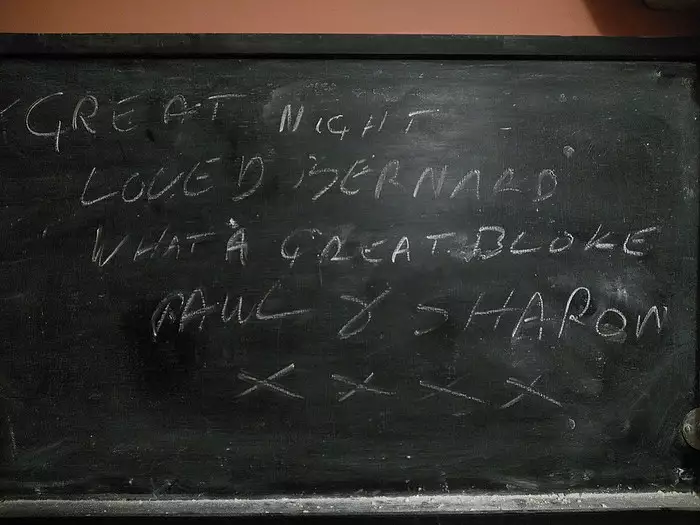 GREAT NIGHT
LOVED BERNARD
WHAT A GREAT BLOKE
PAUL & SHARON
X X X X